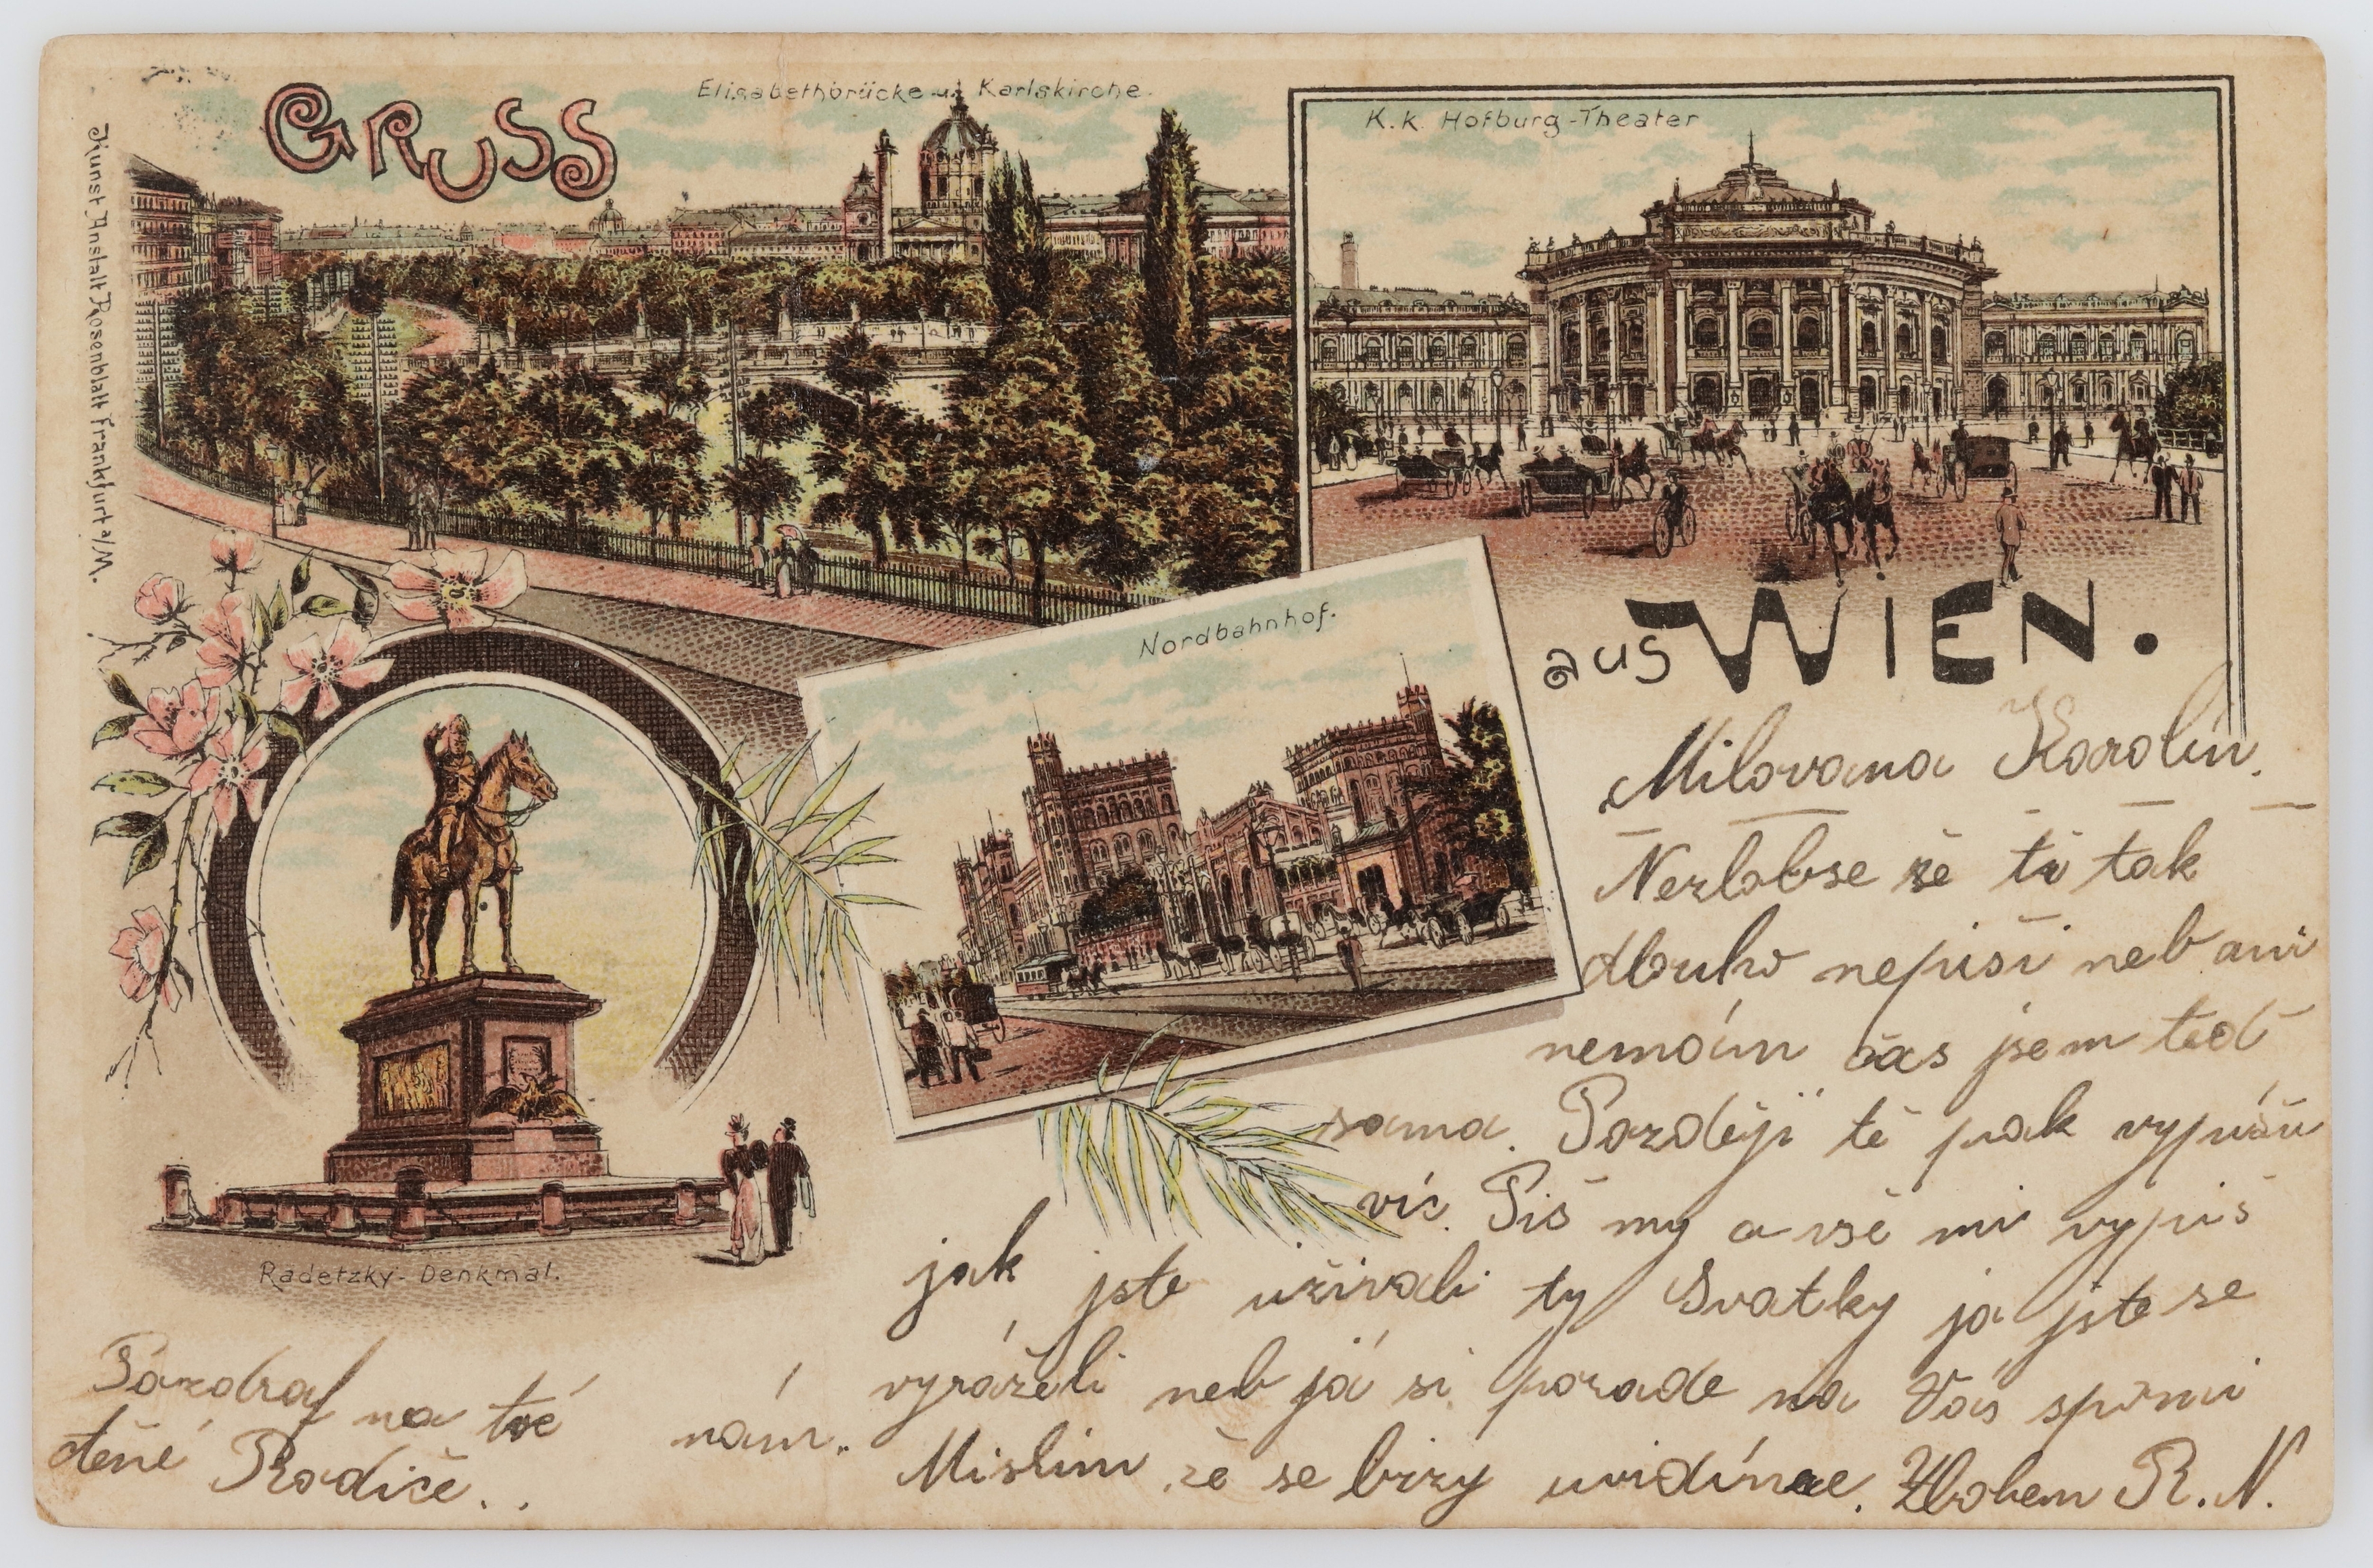 GRUSS
Elisabethbrücke u. Karlskirche.
K.k. Hofburg-Theater
Kunst Anstalt Rosenblatt Frankfurt a/M.
Nordbahnhof.
aus WIEN.
Radetzky-Denkmal.
Milovana Karolin.
Nezlobse že ti tak
dlouho nepiši neb ani
nemám čas jsem teď
sama. Později ti pak vypíšu
víc. Piš my a vše mi vypiš
jak jste užívali ty Svatky ja jste se
vyráželi neb já si porade na Vás
Mislim že se brzy uvidíme. Zbohem R. N.
Pozdraf na tvé
ctěné Rodiče..
nám.